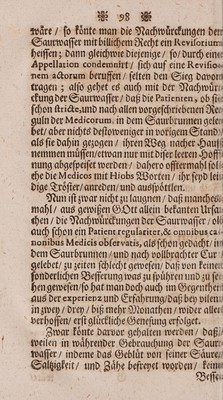 98
wäre / so könte man die Nachwürckungen dem
Saurwasser mit billichem Recht ein Revisorium
heissen; dann gleichwie diejenige / so / durch eine
Appellation condemnirt / sich auf eine Revisio-
nem actorum beruffen / selten den Sieg davon
tragen; also gehet es auch mit der Nachwür-
ckung der Saurwasser / daß die Patienten / ob sie
schon stricte, und nach allen vorgeschriebenen Re-
guln der Medicorum, in dem Saurbrunnen gele-
bet / aber nichts destoweniger in vorigem Stand /
als sie dahin gezogen / ihren Weg nacher Hauß
nemmen müssen / etwan nur mit diser leeren Hoff-
nung abgespeiset werden / dahero offtermahl sol-
che die Medicos mit Hiobs Worten / ihr seyd lei-
dige Tröster / anreden / und außspöttlen.
Nun ist zwar nicht zu laugnen / daß manches-
mahl / aus gewissen GOtt allein bekanten Ursa-
chen / die Nachwürckungen der Saurwasser / ob
auch schon ein Patient regulariter, & omnibus ca-
nonibus Medicis observatis, als schon gedacht / in
dem Saurbrunnen / und nach vollbrachter Cur
gelebet / zu zeiten schlecht gewesen / daß von keiner
sonderlichen Besserung was zu spühren und zu se-
hen gewesen / so hat man doch auch im Gegentheil
aus der experienz und Erfahrung / daß bey vilen
in zwey / drey / biß mehr Monathen / wider alles
verhoffen / erst glückliche Genesung erfolget.
Zwar könte darvor gehalten werden / daß /
weilen in währender Gebrauchung der Saur-
wasser / indeme das Geblüt von seiner Säure /
Saltzigkeit / und Zähe befreyet worden / keine
Besse-